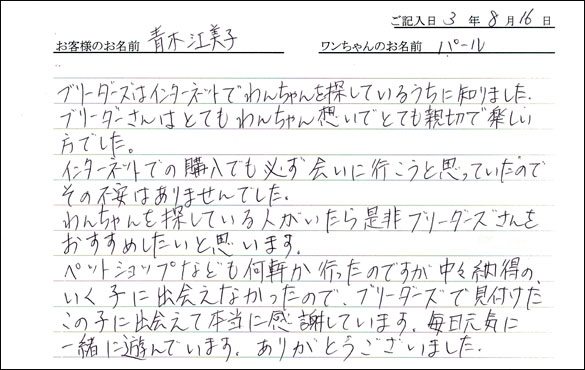 ご記入日 3 年 8 月 16 日
お客様のお名前 青木江美子 ワンちゃんのお名前 パール
ブリーダーズはインターネットでわんちゃんを探しているうちに知りました.
ブリーダーさんはとてもわんちゃん想いでとても親切で楽しい
方でした。
インターネットでの購入でも必ず会いに行こうと思っていたので
その不安はありませんでした.
わんちゃんを探している人がいたら是非ブリーダーズさんを
おすすめしたいと思います.
ペットショップなども何軒か行ったのですが中々納得の、
いく子に出会えなかったので、ブリーダーズで見付けた
この子に出会えて本当に感謝しています. 毎日元気に
一緒に遊んでいます. ありがとうございました.